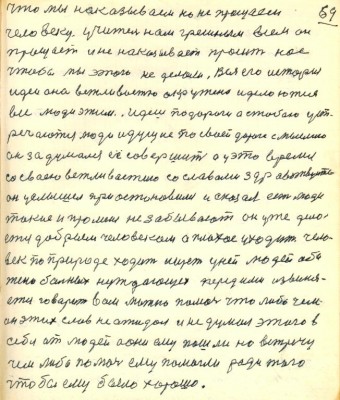 что мы наказываем но не прощаем 69
человеку. учит он нам грешным всем он
прощает и не наказывает просит нас
чтобы мы этого не делали, Вся его история
идеи она вежливостью окружена и делается
все людьми этим. идеш по дороге а с тобою уст-
речаются люди идущие по своей дороге с мыслию
он задумался её совершить а у это время
со своею вежливостию со словами здравствуйте
он усмешил приостановил и сказал есть люди
такие и просил не забывают он уже
добрым человеком а плохое уходит чело-
век по природе ходит ищет у ней людей оби
жено больных нуждающих перед ними извиня-
ется говорит вам можно помочь что либо чем
он этих слов не ожидал и не думал этого в
себя от людей а они ему пошли на встречу
чем либо помоч ему помогли ради того
чтобы ему было хорошо.